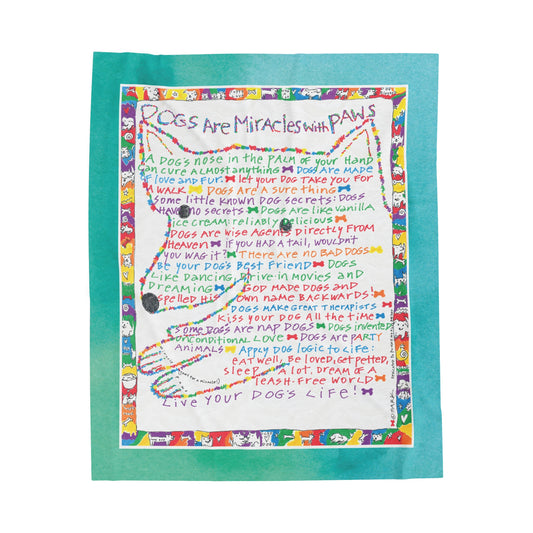 DOGS Are Miracles with PAWS
A DOG'S NOSE IN THE PALM OF YOUR HAND
CAN CURE ALMOST ANYTHING DOGS ARE MADE
OF LOVE AND FUR. LET YOUR DOG TAKE YOU FOR
A WALK. DOGS ARE A SURE THING
SOME LITTLE KNOWN DOG SECRETS: DOGS
HAVE NO SECRETS DOGS ARE LIKE VANILLA
ICE CREAM: RELIABLY DELICIOUS
DOGS ARE WISE AGENTS DIRECTLY FROM
HEAVEN IF YOU HAD A TAIL, WOULDN'T
YOU WAG IT? THERE ARE NO BAD DOGS
BE YOUR DOG'S BEST FRIEND DOGS
LIKE DANCING, DRIVE-IN MOVIES AND
DREAMING GOD MADE DOGS AND
SPELLED HIS OWN NAME BACKWARDS!
DOGS MAKE GREAT THERAPISTS
KISS YOUR DOG ALL THE TIME
SOME DOGS ARE NAP DOGS DOGS INVENTED
UNCONDITIONAL LOVE DOGS ARE PARTY
ANIMALS APPLY DOG LOGIC TO LIFE:
EAT WELL, BE LOVED, GET PETTED,
SLEEP A LOT, DREAM OF A
LEASH-FREE WORLD
LIVE YOUR DOG'S LIFE!